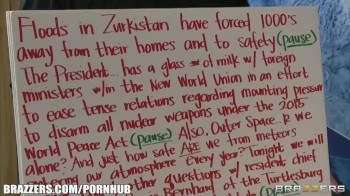 Floods in Zurkistan have forced 1000's
away from their homes and to safety (pause)
The President... has a glass of milk w/ foreign
ministers w/in the New World Union in an effort
to ease tense relations regarding mounting pressure
to disarm all nuclear weapons under the 2015
World Peace Act (pause) Also, Outer Space... R we
alone? And just how safe ARE we from meteors
our atmosphere every year? Tonight we will
other questions w/ resident chief
Bernhard of the Turtlesburg
(pause)
BRAZZERS
BRAZZERS.COM/PORNHUB